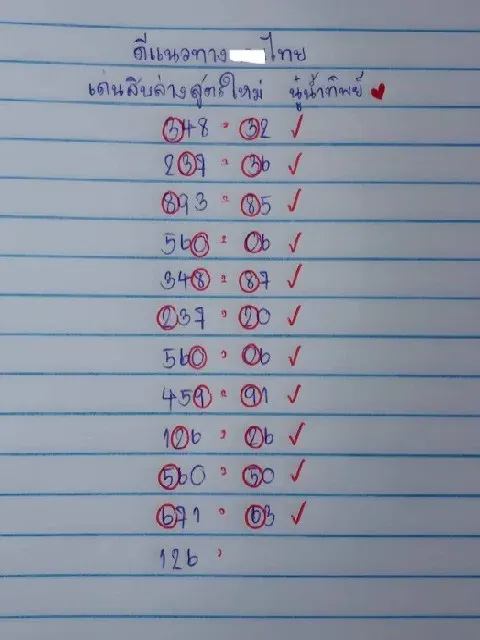 ดีแนวทาง ไทย
เด่นสิบล่างสูตรใหม่ นู๋น้ำทิพย์
348 = 32 ✓
237 = 36 ✓
893 = 85 ✓
560 = 06 ✓
348 = 87 ✓
237 = 20 ✓
560 = 06 ✓
459 = 91 ✓
126 = 26 ✓
560 = 50 ✓
671 = 63 ✓
126 =